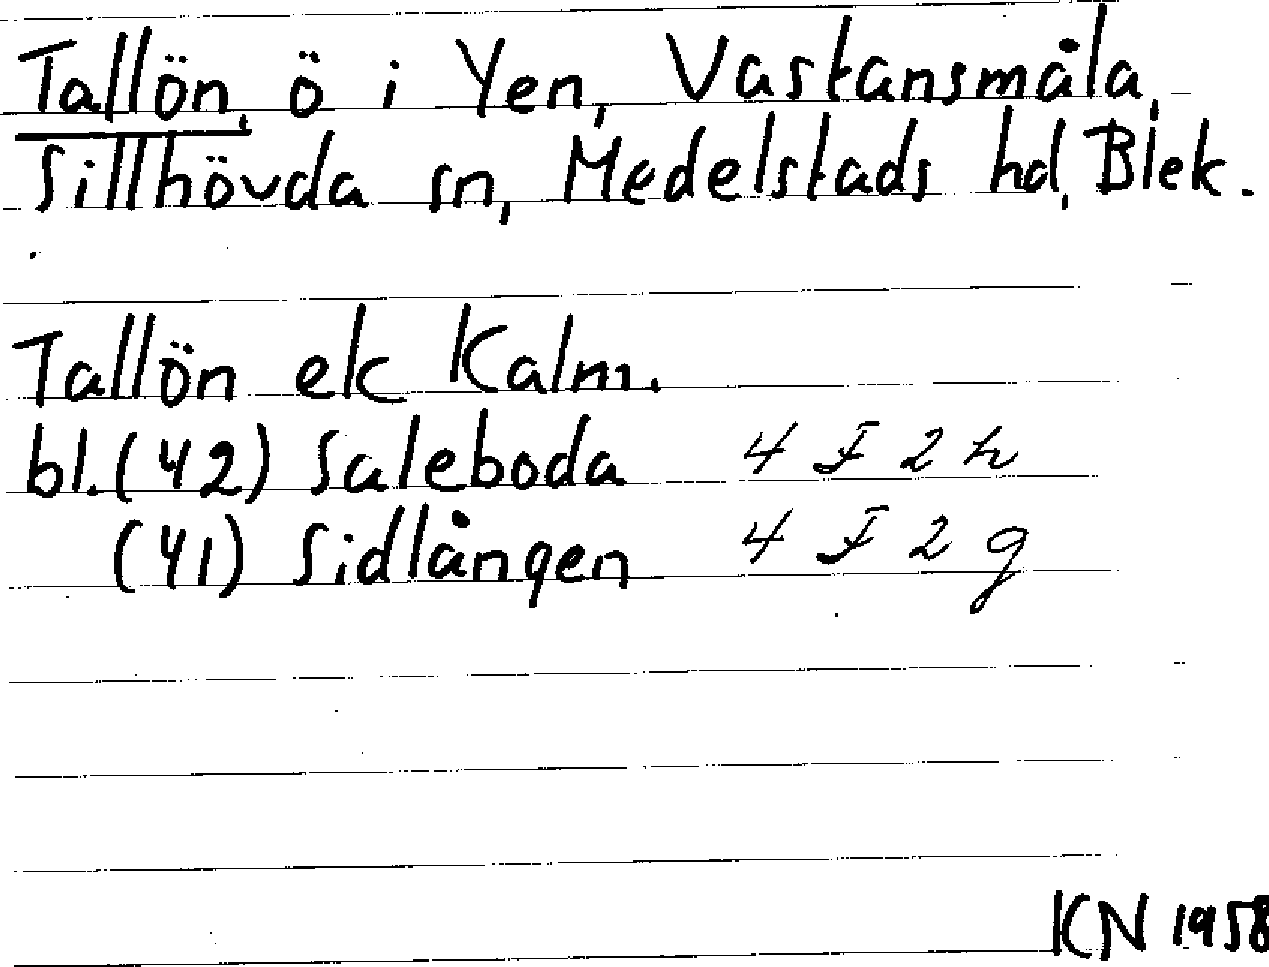 Tallön, ö i Yen, Vastansmåla,
Sillhövda sn, Medelstads hd, Blek.
Tallön ek Kalm.
bl. (42) Saleboda 4 F 2 h
(41) Sidlången 4 F 2 g
KN 1958